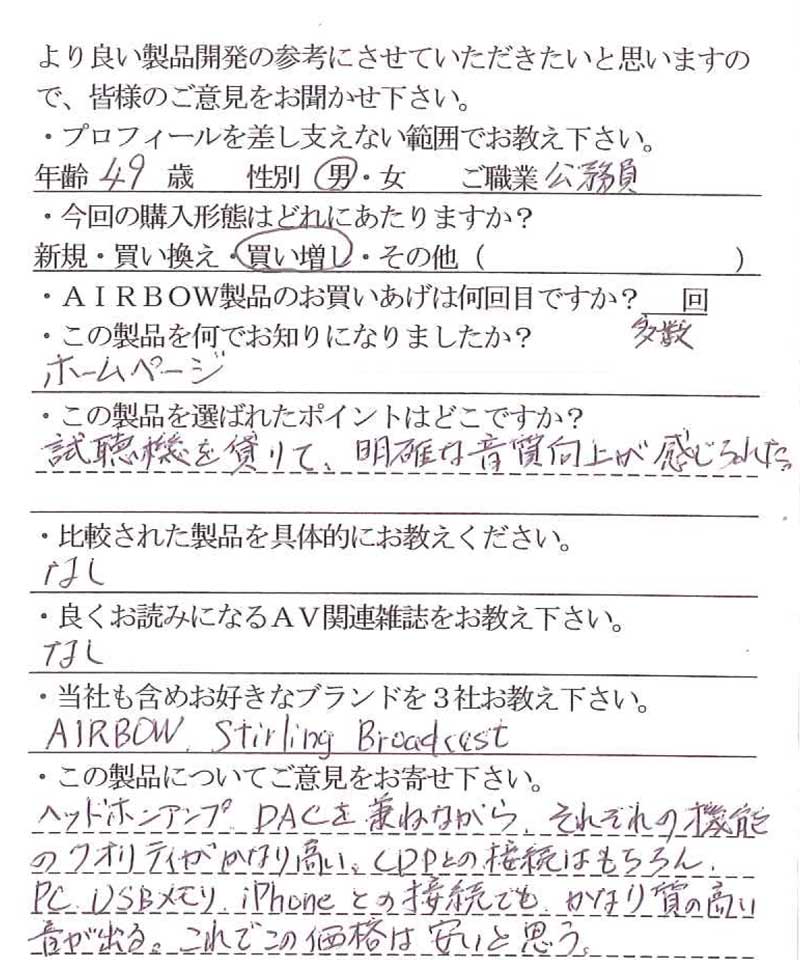 より良い製品開発の参考にさせていただきたいと思いますの
で、皆様のご意見をお聞かせ下さい。
・プロフィールを差し支えない範囲でお教え下さい。
年齢 49 歳 性別 男・女 ご職業 公務員
・今回の購入形態はどれにあたりますか？
新規・買い換え・買い増し・その他（ ）
・ＡＩＲＢＯＷ製品のお買いあげは何回目ですか？ 回
・この製品を何でお知りになりましたか？ 多数
ホームページ
・この製品を選ばれたポイントはどこですか？
試聴機を借りて、明確な音質向上が感じられた。
・比較された製品を具体的にお教えください。
なし
・良くお読みになるＡＶ関連雑誌をお教え下さい。
なし
・当社も含めお好きなブランドを３社お教え下さい。
AIRBOW、Stirling Broadcast
・この製品についてご意見をお寄せ下さい。
ヘッドホンアンプ、DACを兼ねながら、それぞれの機能
のクオリティがかなり高い。CDPとの接続はもちろん、
PC、USBメモリ、iPhoneとの接続でも、かなり質の高い
音が出る。これでこの価格は安いと思う。